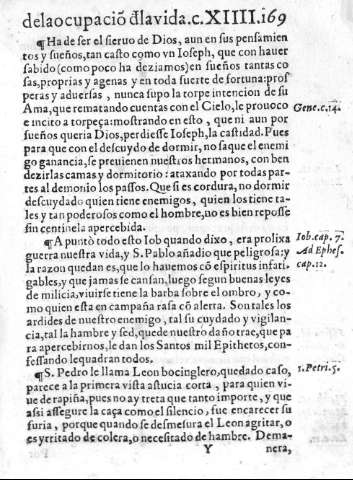 de la ocupació d̃la vida.c.XIIII.169
¶Ha de ser el sieruo de Dios, aun en sus pensamien
tos y sueños, tan casto como vn Ioseph, que con hauer
sabido (como poco ha deziamos) en sueños tantas co
sas, proprias y agenas y en toda suerte de fortuna: pros
peras y aduersas, nunca supo la torpe intencion de su
Ama, que rematando cuentas con el Cielo, le prouoco
e incito a torpeça: mostrando en esto, que ni aun por
sueños queria Dios, perdiesse Ioseph, la castidad. Pues
para que con el descuydo de dormir, no saque el enemi
go ganancia, se preuienen nuestros hermanos, con ben
dezirlas camas y dormitorio: ataxando por todas par-
tes al demonio los passos. Que si es cordura, no dormir
descuydado quien tiene enemigos, quien los tiene ta-
les y tan poderosos como el hombre, no es bien repose
sin centinela apercebida.
¶A puntò todo esto Iob quando dixo, era prolixa
guerra nuestra vida, y S. Pablo añadio que peligrosa: y
la razon quedan es, que lo hauemos cō espiritus infati-
gables, y que jamas se cansan, luego segun buenas leyes
de milicia, viuirse tiene la barba sobre el ombro, y co-
mo quien esta en campaña rasa cō alerta. Son tales los
ardides de nuestro enemigo, tal su cuydado y vigilan-
cia, tal la hambre y sed, quede nuestro daño trae, que pa
ra apercebirnos, le dan los Santos mil Epithetos, con-
fessando le quadran todos.
¶S. Pedro le llama Leon bocinglero, quedado caso,
parece a la primera vista astucia corta, para quien vi-
ue de rapiña, pues no ay treta que tanto importe, y que
assi assegure la caça como el silencio, fue encarecer su
furia, porque quando se desmesura el Leon a gritar, o
es yrritado de colera, o necesitado de hambre. Dema-
Y nera,
Gene.c.14.
Iob.cap.7.
Ad Ephes.
cap.12.
1.Petri.5.